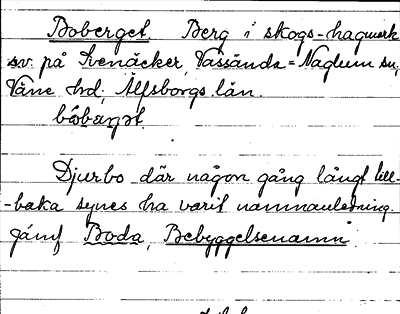 Boberget. Berg i skogs-hagmark
sv. på Svenäcker, Vassända-Naglum sn,
Väne hd, Älfsborgs län.
Djurbo där någon gång långt till-
-baka synes ha varit namnanledning.
Jämf Boda, Bebyggelsenamn.